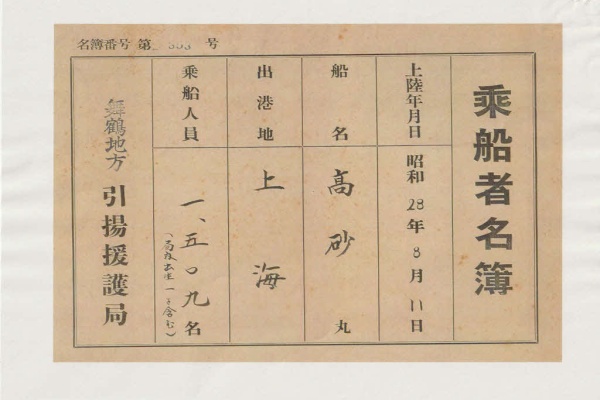 名簿番号 第 353 号
乗船者名簿
上陸年月日 昭和28年8月11日
船名 高砂丸
出港地 上海
乗船人員 一、五〇九名
舞鶴地方引揚援護局